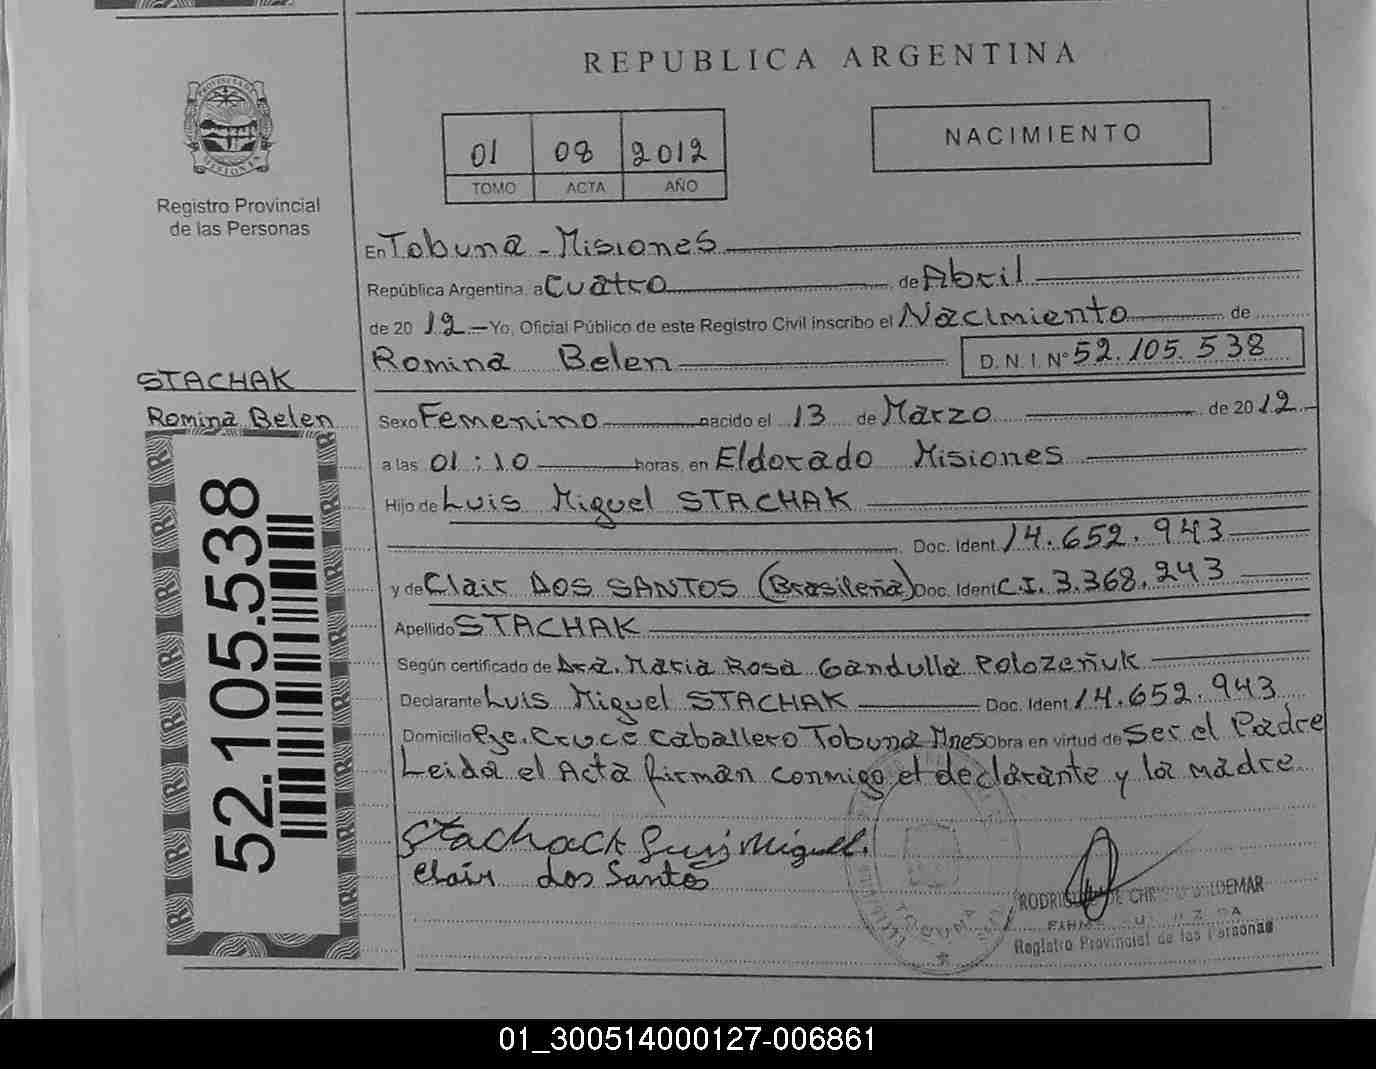 REPUBLICA ARGENTINA
PROVINCIA DE MISIONES
Registro Provincial
de las Personas
01 08 2012
TOMO ACTA AÑO
NACIMIENTO
En Tobuna - Misiones
República Argentina, a Cuatro de Abril
de 20 12 - Yo, Oficial Público de este Registro Civil inscribo el Nacimiento de
Romina Belen D.N.I. Nº 52.105.538
STACHAK
Romina Belen
52.105.538
Sexo Femenino nacido el 13 de Marzo de 2012.-
a las 01:10 horas, en Eldorado Misiones
Hijo de Luis Miguel STACHAK
Doc. Ident. 14.652.943
y de Clair DOS SANTOS (Brasileña) Doc. Ident C.I. 3.368.243
Apellido STACHAK
Según certificado de Dra. Maria Rosa Gandulla Polozeñuk
Declarante Luis Miguel STACHAK Doc. Ident. 14.652.943
Domicilio Pje. Cruce Caballero Tobuna Mnes Obra en virtud de Ser el Padre
Leida el Acta firman conmigo el declarante y la madre
Stachack Luis Miguel.
Clair dos Santos
TOBUNA
Registro Provincial de las Personas
01_300514000127-006861